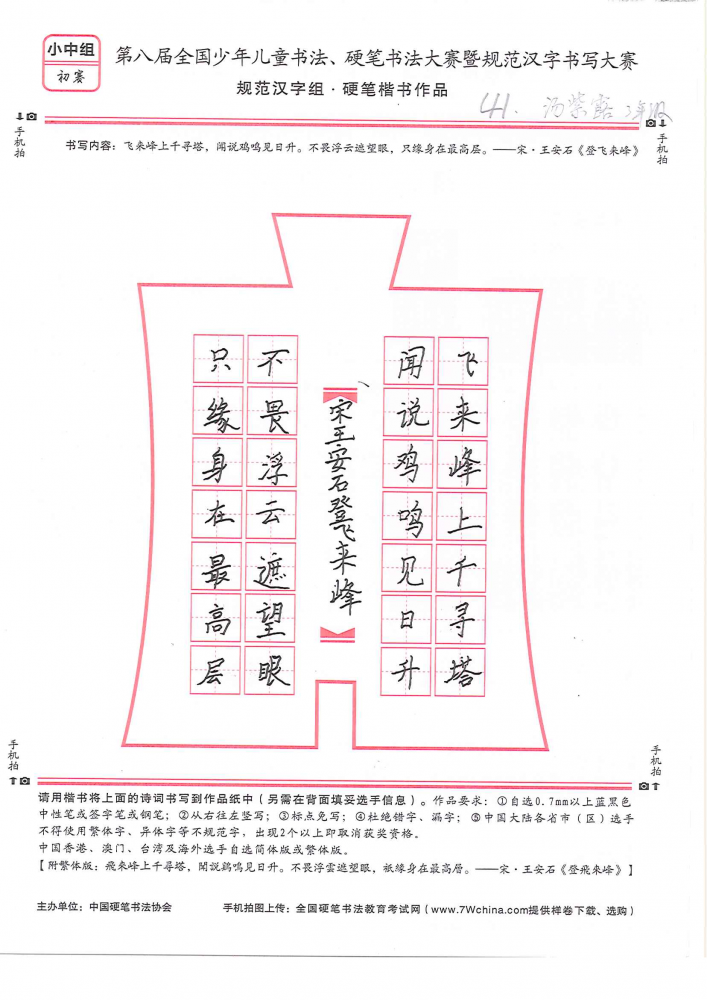 小中组
初赛
第八届全国少年儿童书法、硬笔书法大赛暨规范汉字书写大赛
规范汉字组·硬笔楷书作品
41. 汤紫露 2年级
手机拍
手机拍
书写内容：飞来峰上千寻塔，闻说鸡鸣见日升。不畏浮云遮望眼，只缘身在最高层。——宋·王安石《登飞来峰》
飞来峰上千寻塔
闻说鸡鸣见日升
宋王安石登飞来峰
不畏浮云遮望眼
只缘身在最高层
手机拍
手机拍
请用楷书将上面的诗词书写到作品纸中（另需在背面填妥选手信息）。作品要求：①自选0.7mm以上蓝黑色
中性笔或签字笔或钢笔；②从右往左竖写；③标点免写；④杜绝错字、漏字；⑤中国大陆各省市（区）选手
不得使用繁体字、异体字等不规范字，出现2个以上即取消获奖资格。
中国香港、澳门、台湾及海外选手自选简体版或繁体版。
【附繁体版：飛来峰上千尋塔，聞説鷄鳴見日升。不畏浮雲遮望眼，祇緣身在最高層。——宋·王安石《登飛来峰》】
主办单位：中国硬笔书法协会
手机拍图上传：全国硬笔书法教育考试网（www.7Wchina.com提供样卷下载、选购）